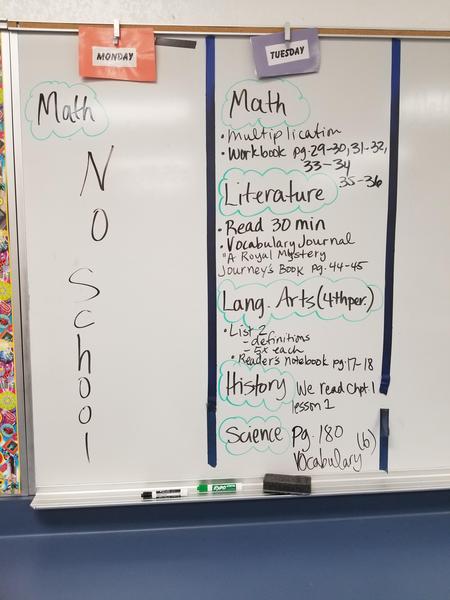 MONDAY
Math
No School
TUESDAY
Math
• Multiplication
• Workbook pg. 29-30, 31-32,
33-34
35-36
Literature
• Read 30 min
• Vocabulary Journal
"A Royal Mystery
Journey's Book pg. 44-45
Lang. Arts (4th per.)
• List 2
- definitions
- 5x each
• Reader's notebook pg. 17-18
History We read Chpt 1
lesson 1
Science Pg. 180 (6)
Vocabulary
EXPO